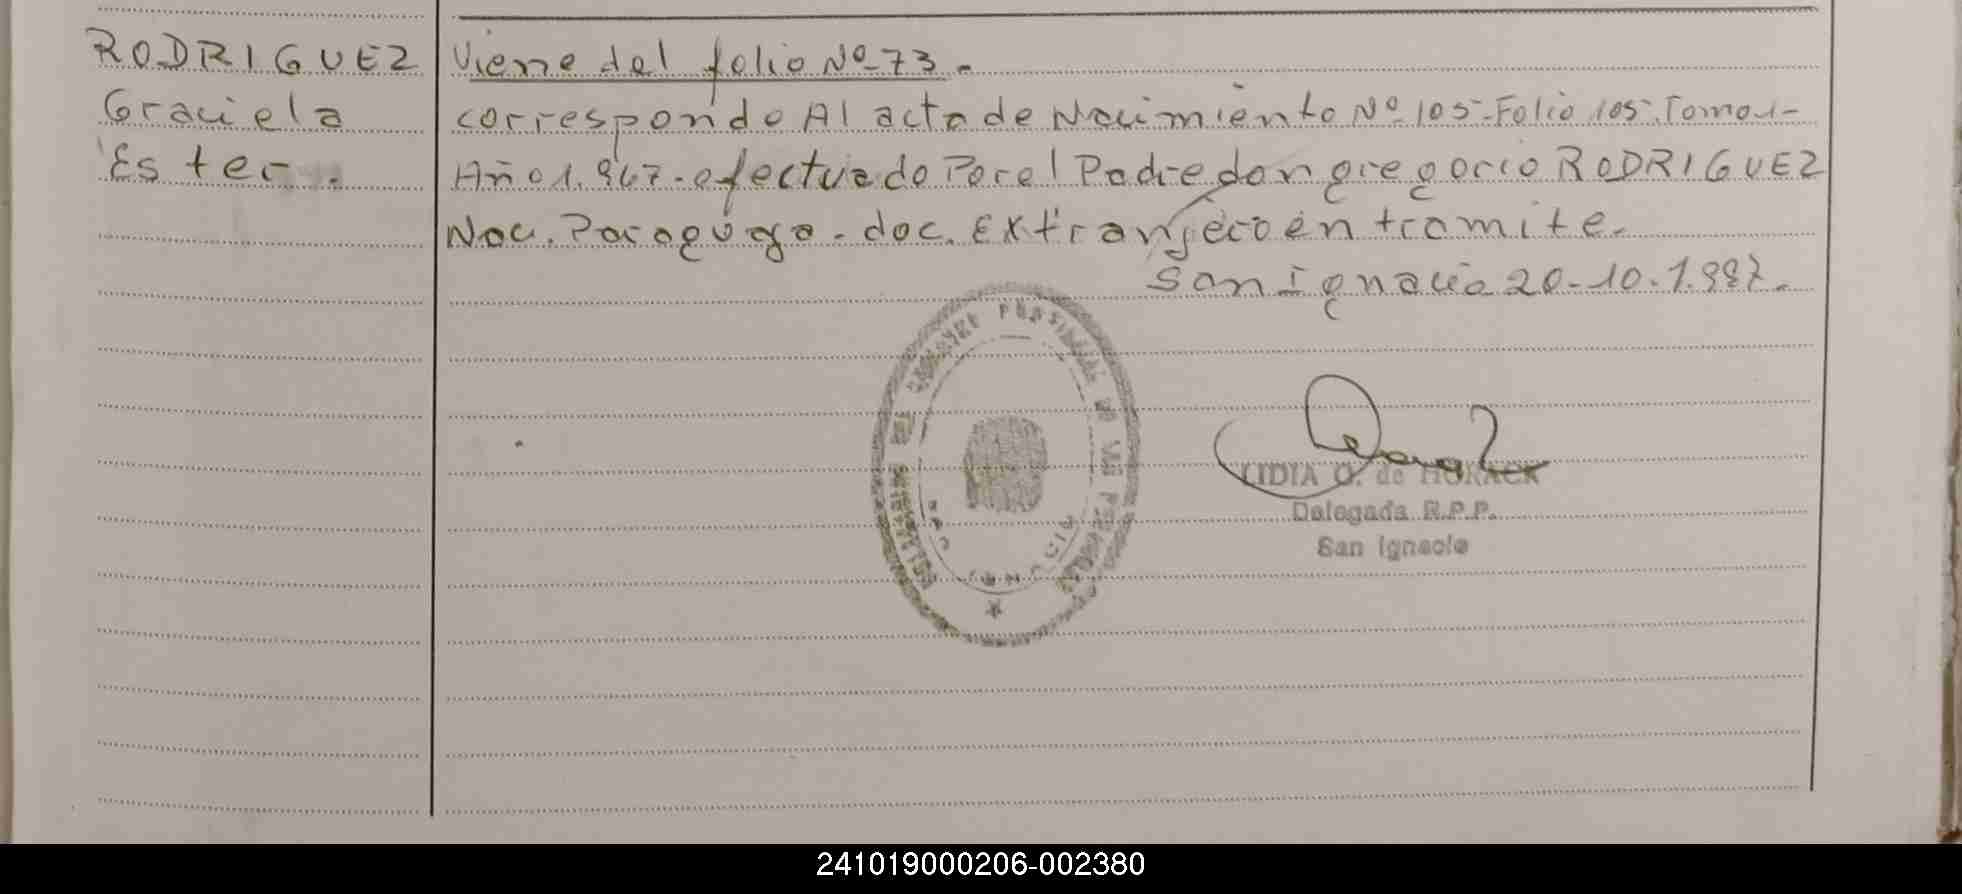 RODRIGUEZ
Graciela
Ester.
Viene del folio Nº 73.-
correspondo Al acta de Nacimiento Nº 105-Folio 105-Tomo 1-
Año 1.967.-efectuado Por el Padre don gregorio RODRIGUEZ
Nac. Paraguaya-doc. Extranjero en tramite.
San Ignacio 20-10-1.987.-
LIDIA O. de HORACK
Delegada R.P.P.
San Ignacio
241019000206-002380